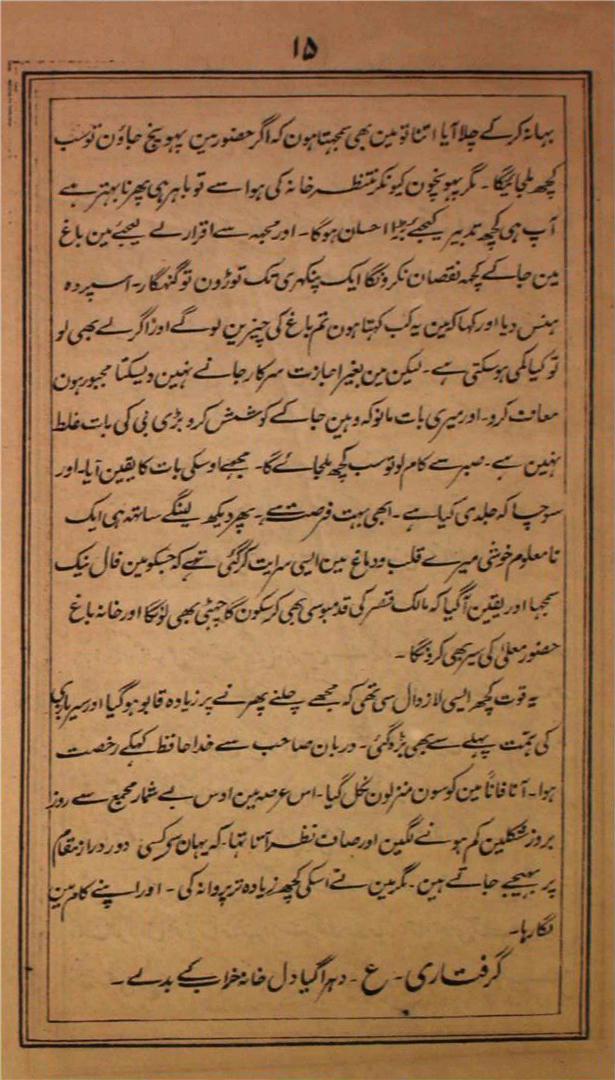 ۱۵
بہانہ کرکے چلا آیا اتنا تو مین بھی سمجہتا ہون کہ اگر حضور مین پہونچ جاؤن تو سب
کچھ ملجائیگا ۔ مگر پہونچون کیونکر منتظر خانہ کی ہوا سے تو باہر ہی پھرنا بہتر ہے
آپ ہی کچھ تدبیر کیجئے بڑا احسان ہوگا ۔ اور مجھہ سے اقرار لے لیجئے مین باغ
مین جاکے کچھہ نقصان نکرونگا ایک پنکہری تک توڑون تو گنہگار ۔ اسپر دہ
ہنس دیا اور کہا کہ مین یہ کب کہتا ہون تم باغ کی چیزین لوگے اور اگر لے بھی لو
تو کیا کمی ہوسکتی ہے ۔ لیکن مین بغیر اجازت سرکار جانے نہین دیسکتا مجبور ہون
معاف کرو ۔ اور میری بات مانو کہ وہین جاکے کوشش کرو بڑی بی کی بات غلط
نہین ہے ۔ صبر سے کام لو تو سب کچھ ملجائے گا ۔ مجھے اوسکی بات کا یقین آیا ۔ اور
سوچا کہ جلدی کیا ہے ۔ ابھی بہت فرصت ہے ۔ پھر دیکھ لینگے ساتھہ ہی ایک
نامعلوم خوشی میرے قلب و دماغ مین ایسی سرایت کرگئی تھی کہ جسکو مین فال نیک
سمجہا اور یقین آگیا کہ مالک قصر کی قدمبوسی بھی کرسکون گا چہٹی بھی لونگا اور خانہ باغ
حضور معلیٰ کی سیر بھی کرونگا ۔
یہ قوت کچھ ایسی لازوال سی تھی کہ مجھے چلنے پھرنے پر زیادہ قابو ہوگیا اور سیر
کی ہمت پہلے سے بھی بڑہ گئی ۔ دربان صاحب سے خدا حافظ کہکے رخصت
ہوا ۔ آناً فاناً مین کوسون منزلون نکل گیا ۔ اس عرصہ مین اوس بے شمار مجمع سے روز
بروز شکلین کم ہونے لگین اور صاف نظر آتا تہا ۔ کہ یہان سے کسی دور دراز مقام
پر بہیجے جاتے ہین ۔ مگر مین نے اسکی کچھ زیادہ تر پروانہ کی ۔ اور اپنے کام مین
لگا رہا ۔
گرفتاری ۔ ع ۔ دہرا گیا دل خانہ خراب کے بدلے ۔